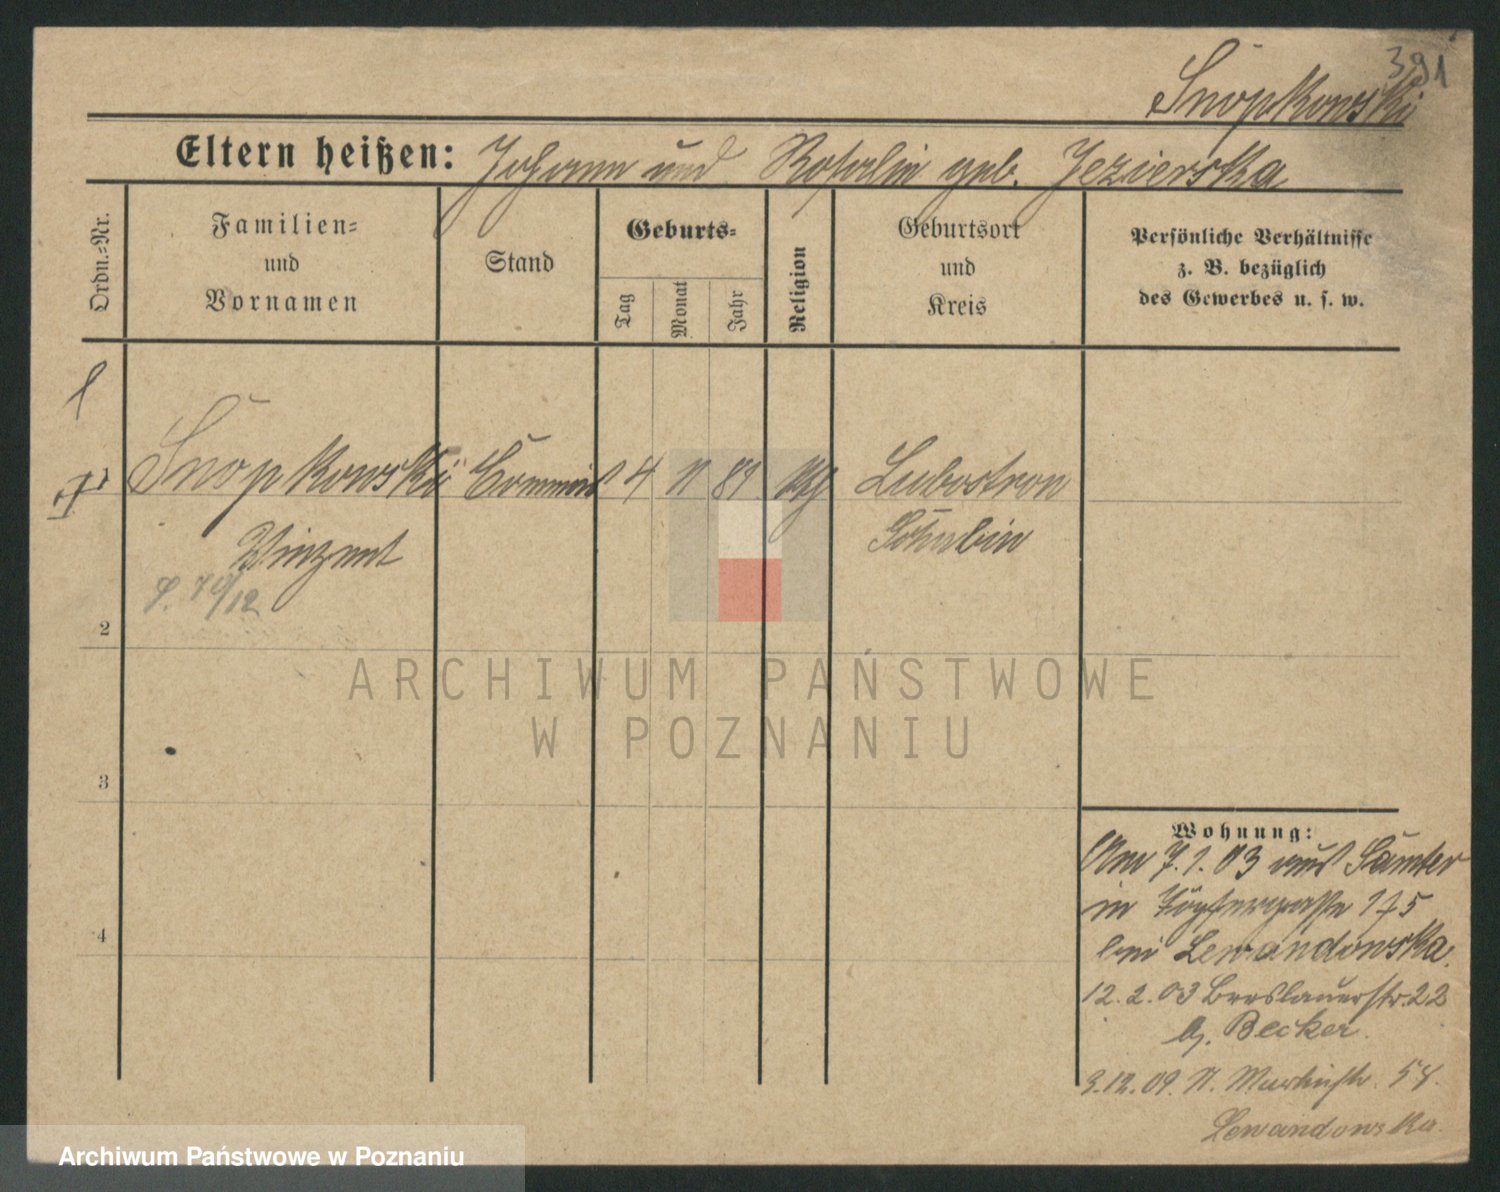 391
Snopkowski
Eltern heißen: Johann und Rosalie geb. Jezierska
Ordn.-Nr.
Familien-
und
Vornamen
Stand
Geburts-
Tag
Monat
Jahr
Religion
Geburtsort
und
Kreis
Persönliche Verhältnisse
z. B. bezüglich
des Gewerbes u. s. w.
1
Snopkowski Commis 4 11 81 Lubostron
Vinzent Schubin
2
3
4
Wohnung:
Am 7.1.03 aus Samter
in Töpfergasse 175
bei Lewandowska.
12.2.03 Breslauerstr. 22
Becker.
3.12.09. N. 58.
Lewandowska.
ARCHIWUM PAŃSTWOWE
W POZNANIU
Archiwum Państwowe w Poznaniu